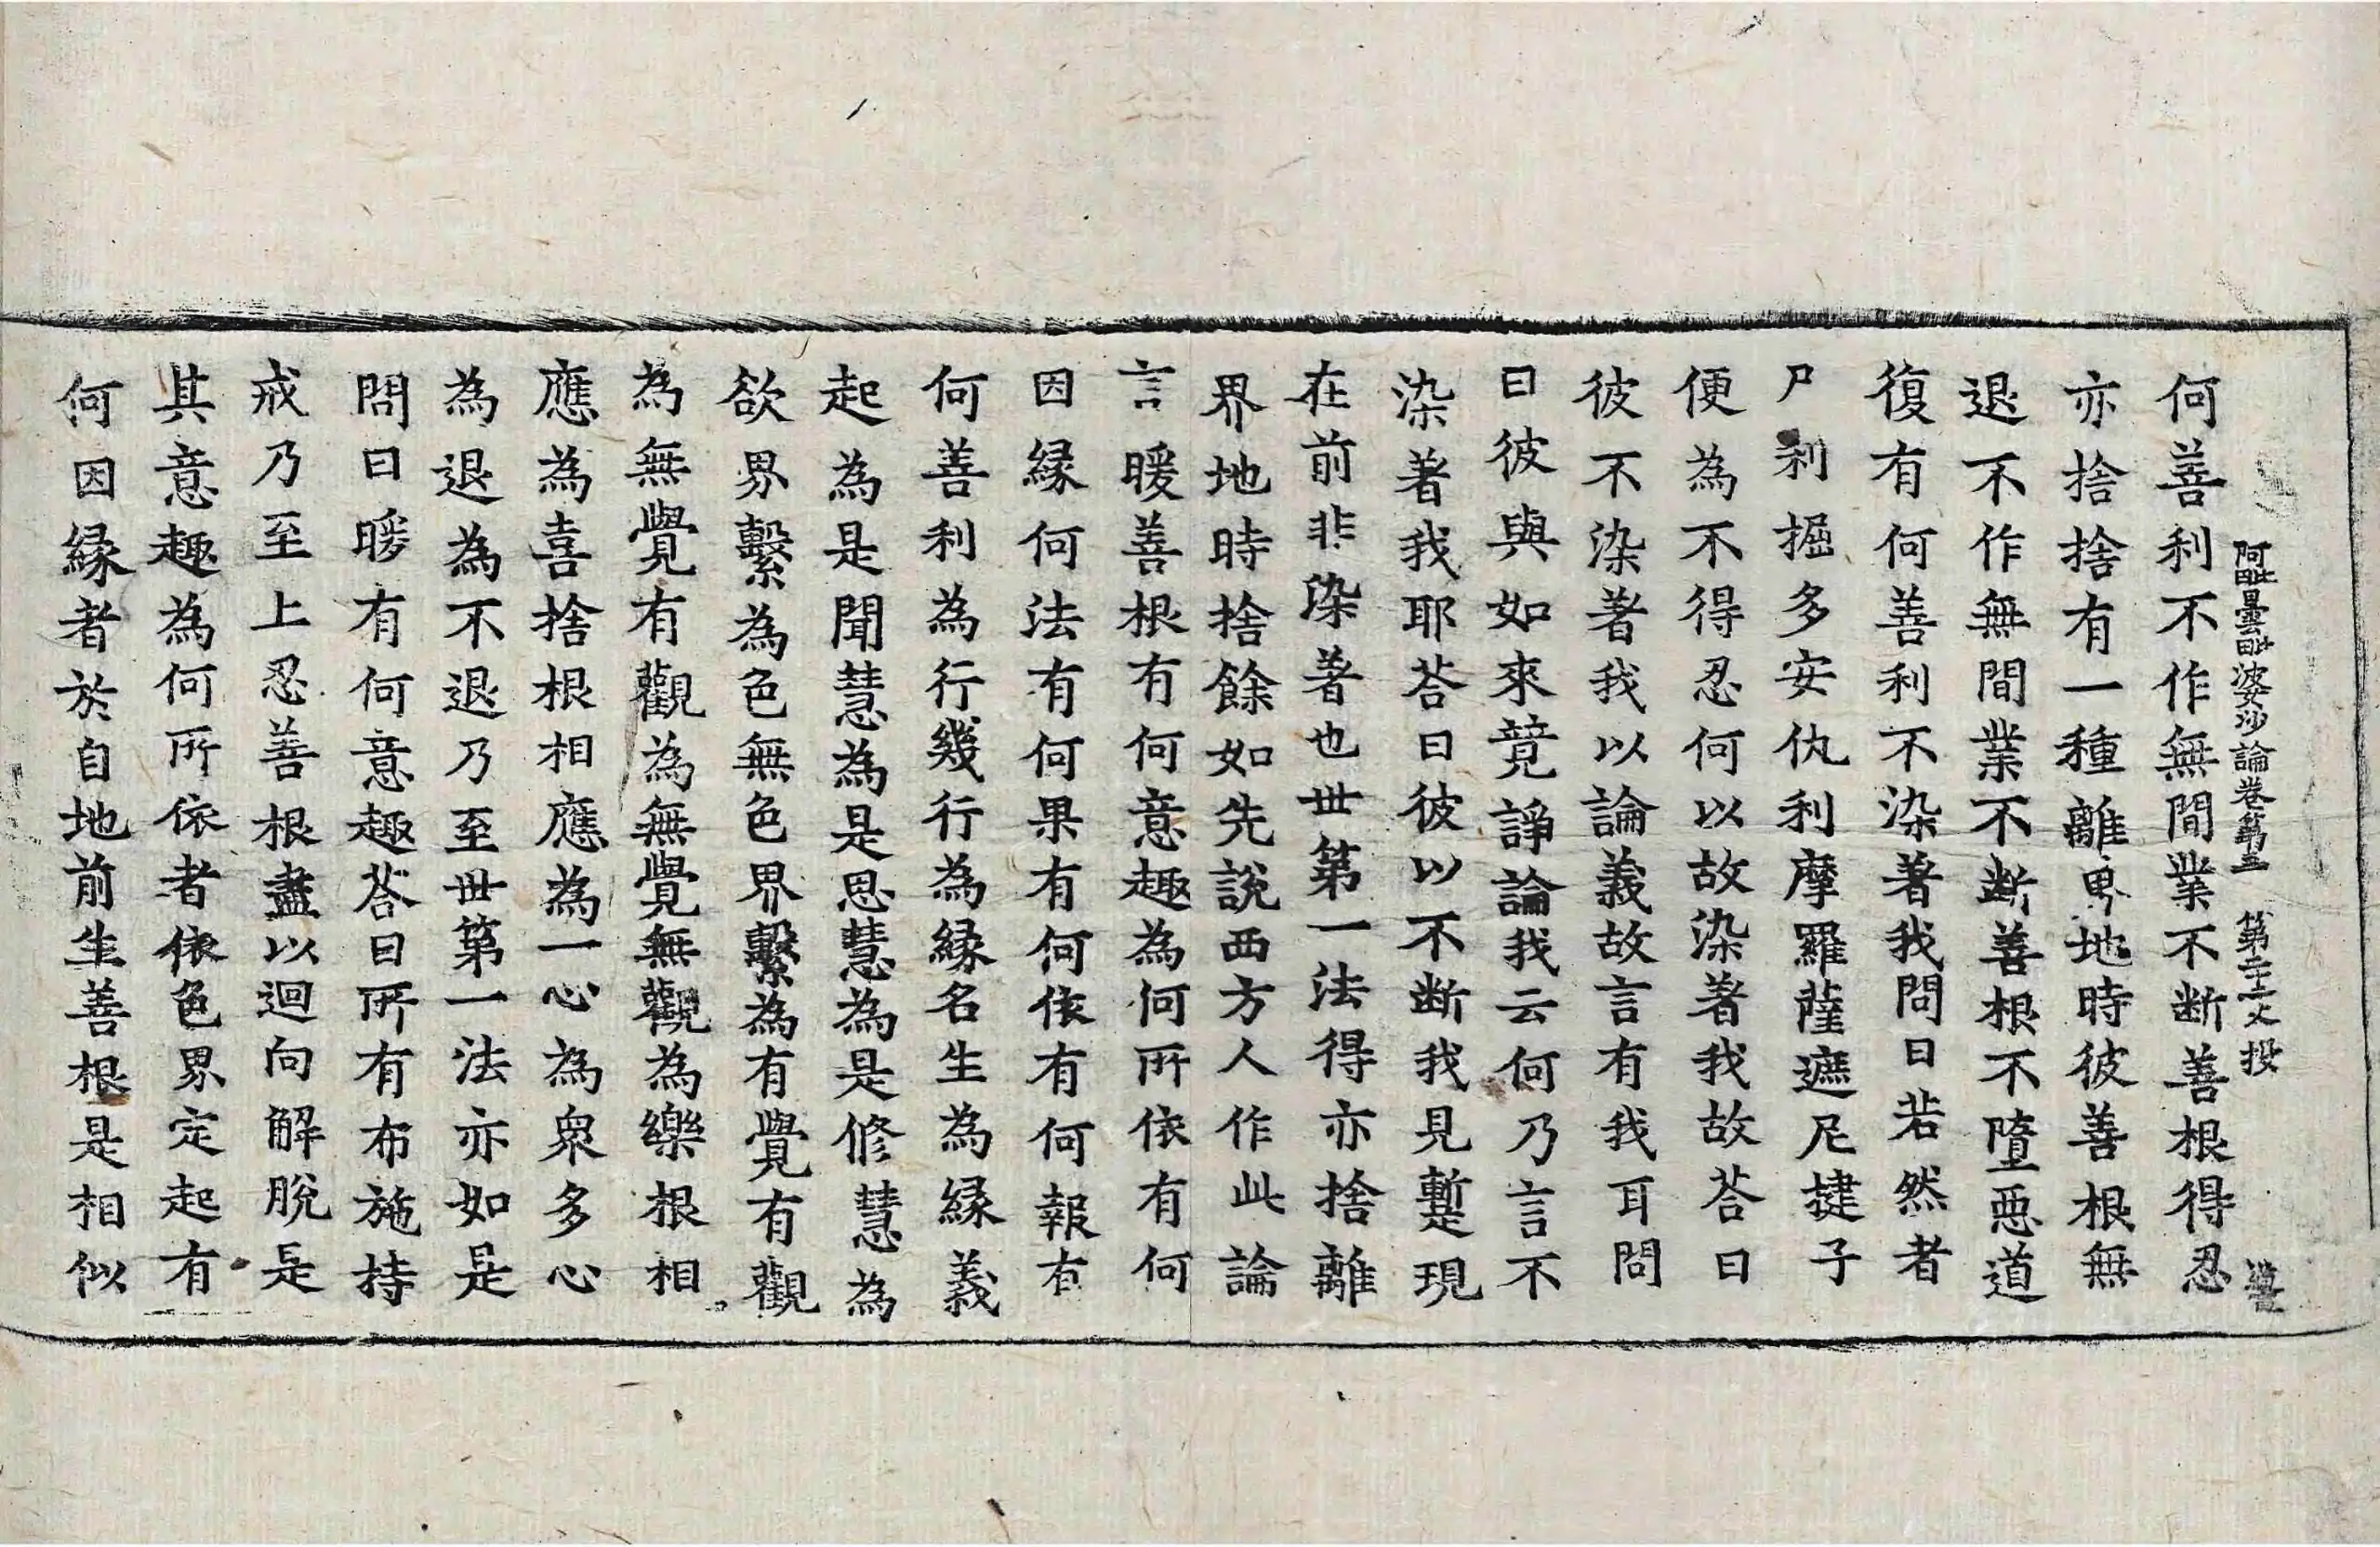 阿毗曇毗婆沙論卷第三 第二十二丈 投
何善利不作無間業不断善根得忍
亦捨捨有一種離界地時彼善根無
退不作無間業不断善根不墮惡道
復有何善利不染著我問曰若然者
尸利掘多安仇利摩羅薩遮尼揵子
便為不得忍何以故染著我故荅曰
彼不染著我以論義故言有我耳問
曰彼與如來競諍論我云何乃言不
染著我耶荅曰彼以不断我見蹔現
在前非染著也世第一法得亦捨離
界地時捨餘如先說西方人作此論
言暖善根有何意趣為何所依有何
因緣何法有何果有何依有何報有
何善利為行幾行為緣名生為緣義
起為是聞慧為是思慧為是修慧為
欲界繫為色無色界繫為有覺有觀
為無覺有觀為無覺無觀為樂根相
應為喜捨根相應為一心為衆多心
為退為不退乃至世第一法亦如是
問曰暖有何意趣荅曰所有布施持
戒乃至上忍善根盡以迴向解脫是
其意趣為何所依者依色界定起有
何因緣者於自地前生善根是相似